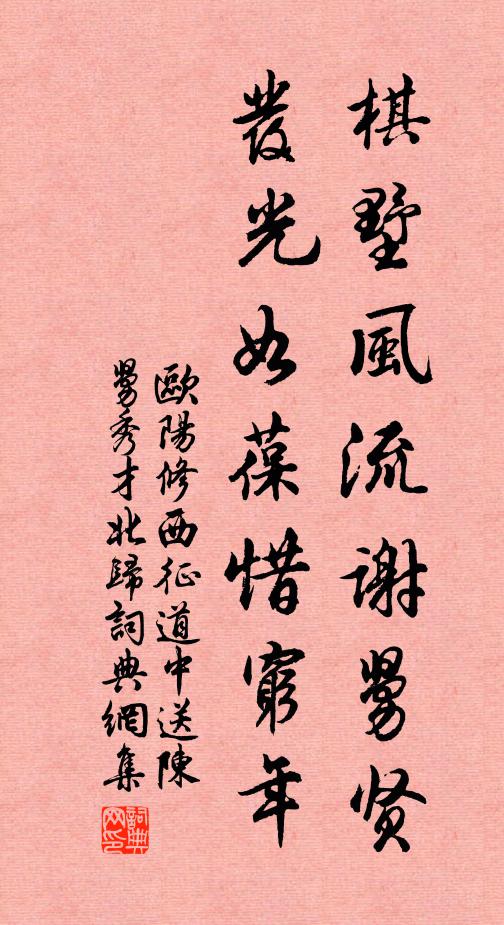 棋墅風流謝舅贤
發光如葆惜窮年
歐陽修西征道中送陳
舅秀才北歸詞典網集
詞典网印